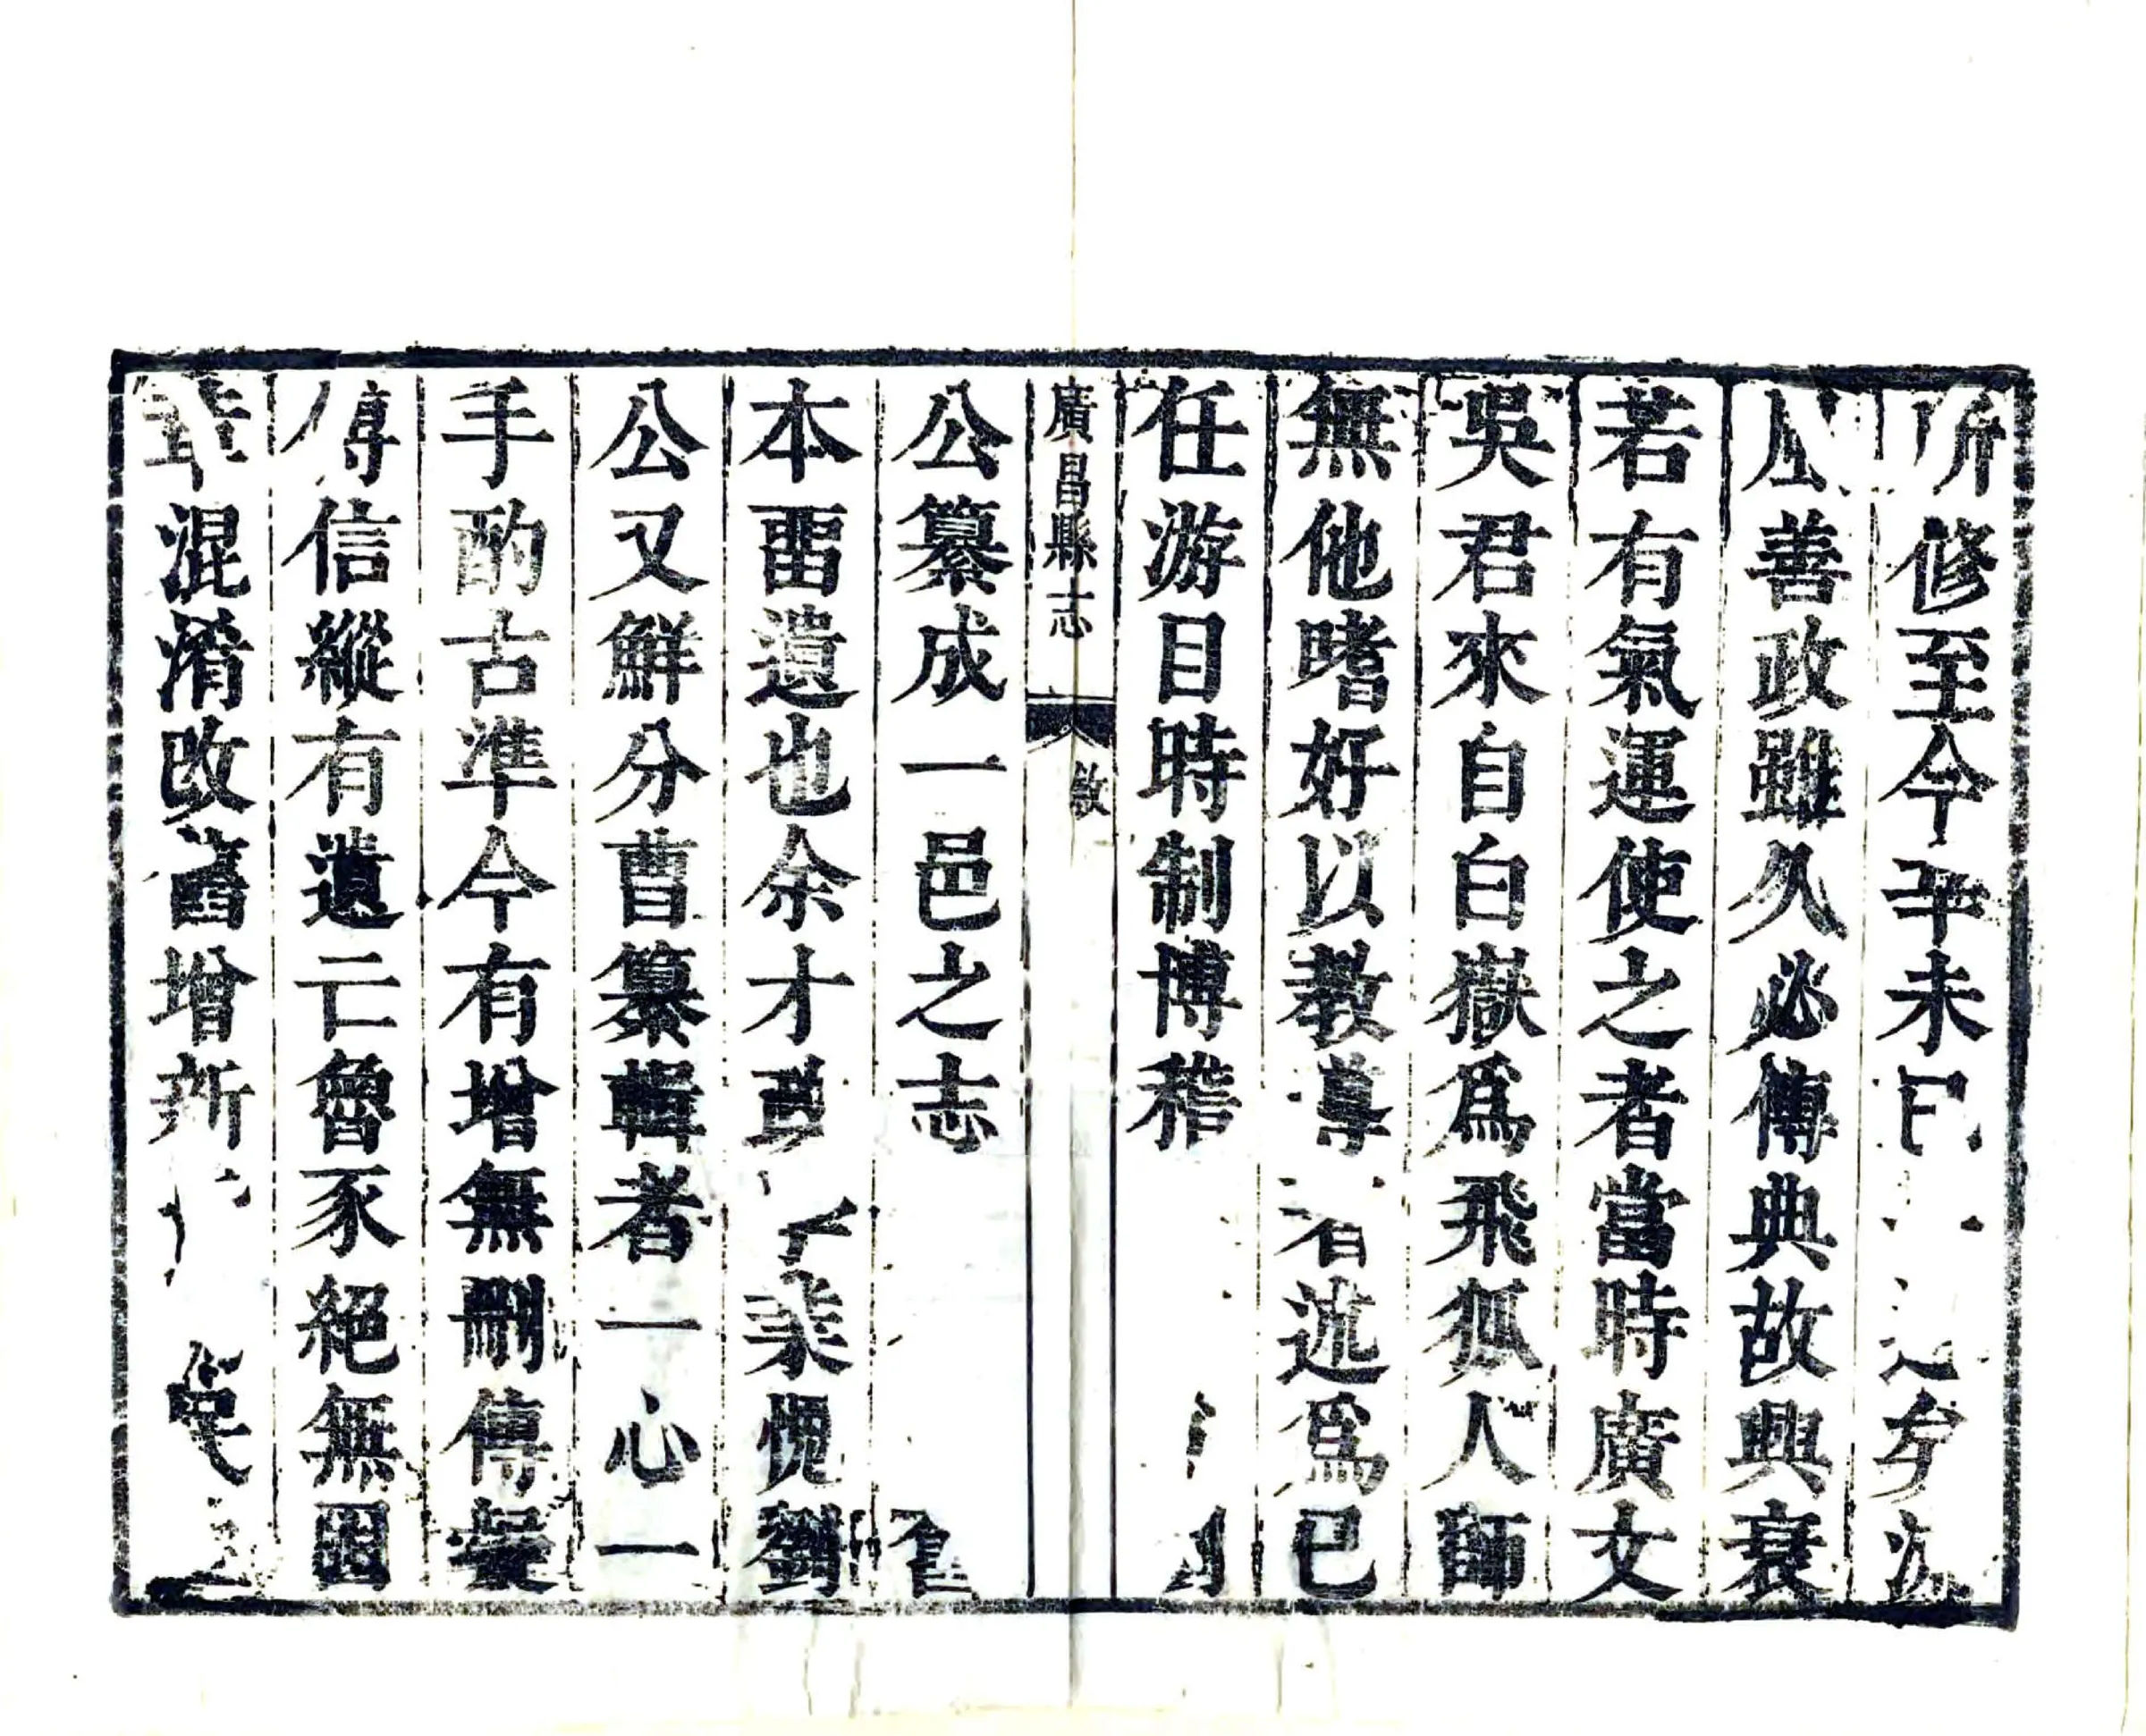 所修至今辛未
善政雖久必傳典故興衰
若有氣運使之者當時廣文
吳君來自白嶽爲飛狐人師
無他嗜好以教導著述爲已
任游目時制博稽
廣昌縣志 敘
公纂成一邑之志
本畱遺也余才 業愧劉
公又鮮分曹纂輯者一心一
手酌古準今有增無刪傳疑
傳信縱有遺亡魯豕絕無因
革混淆改舊增新